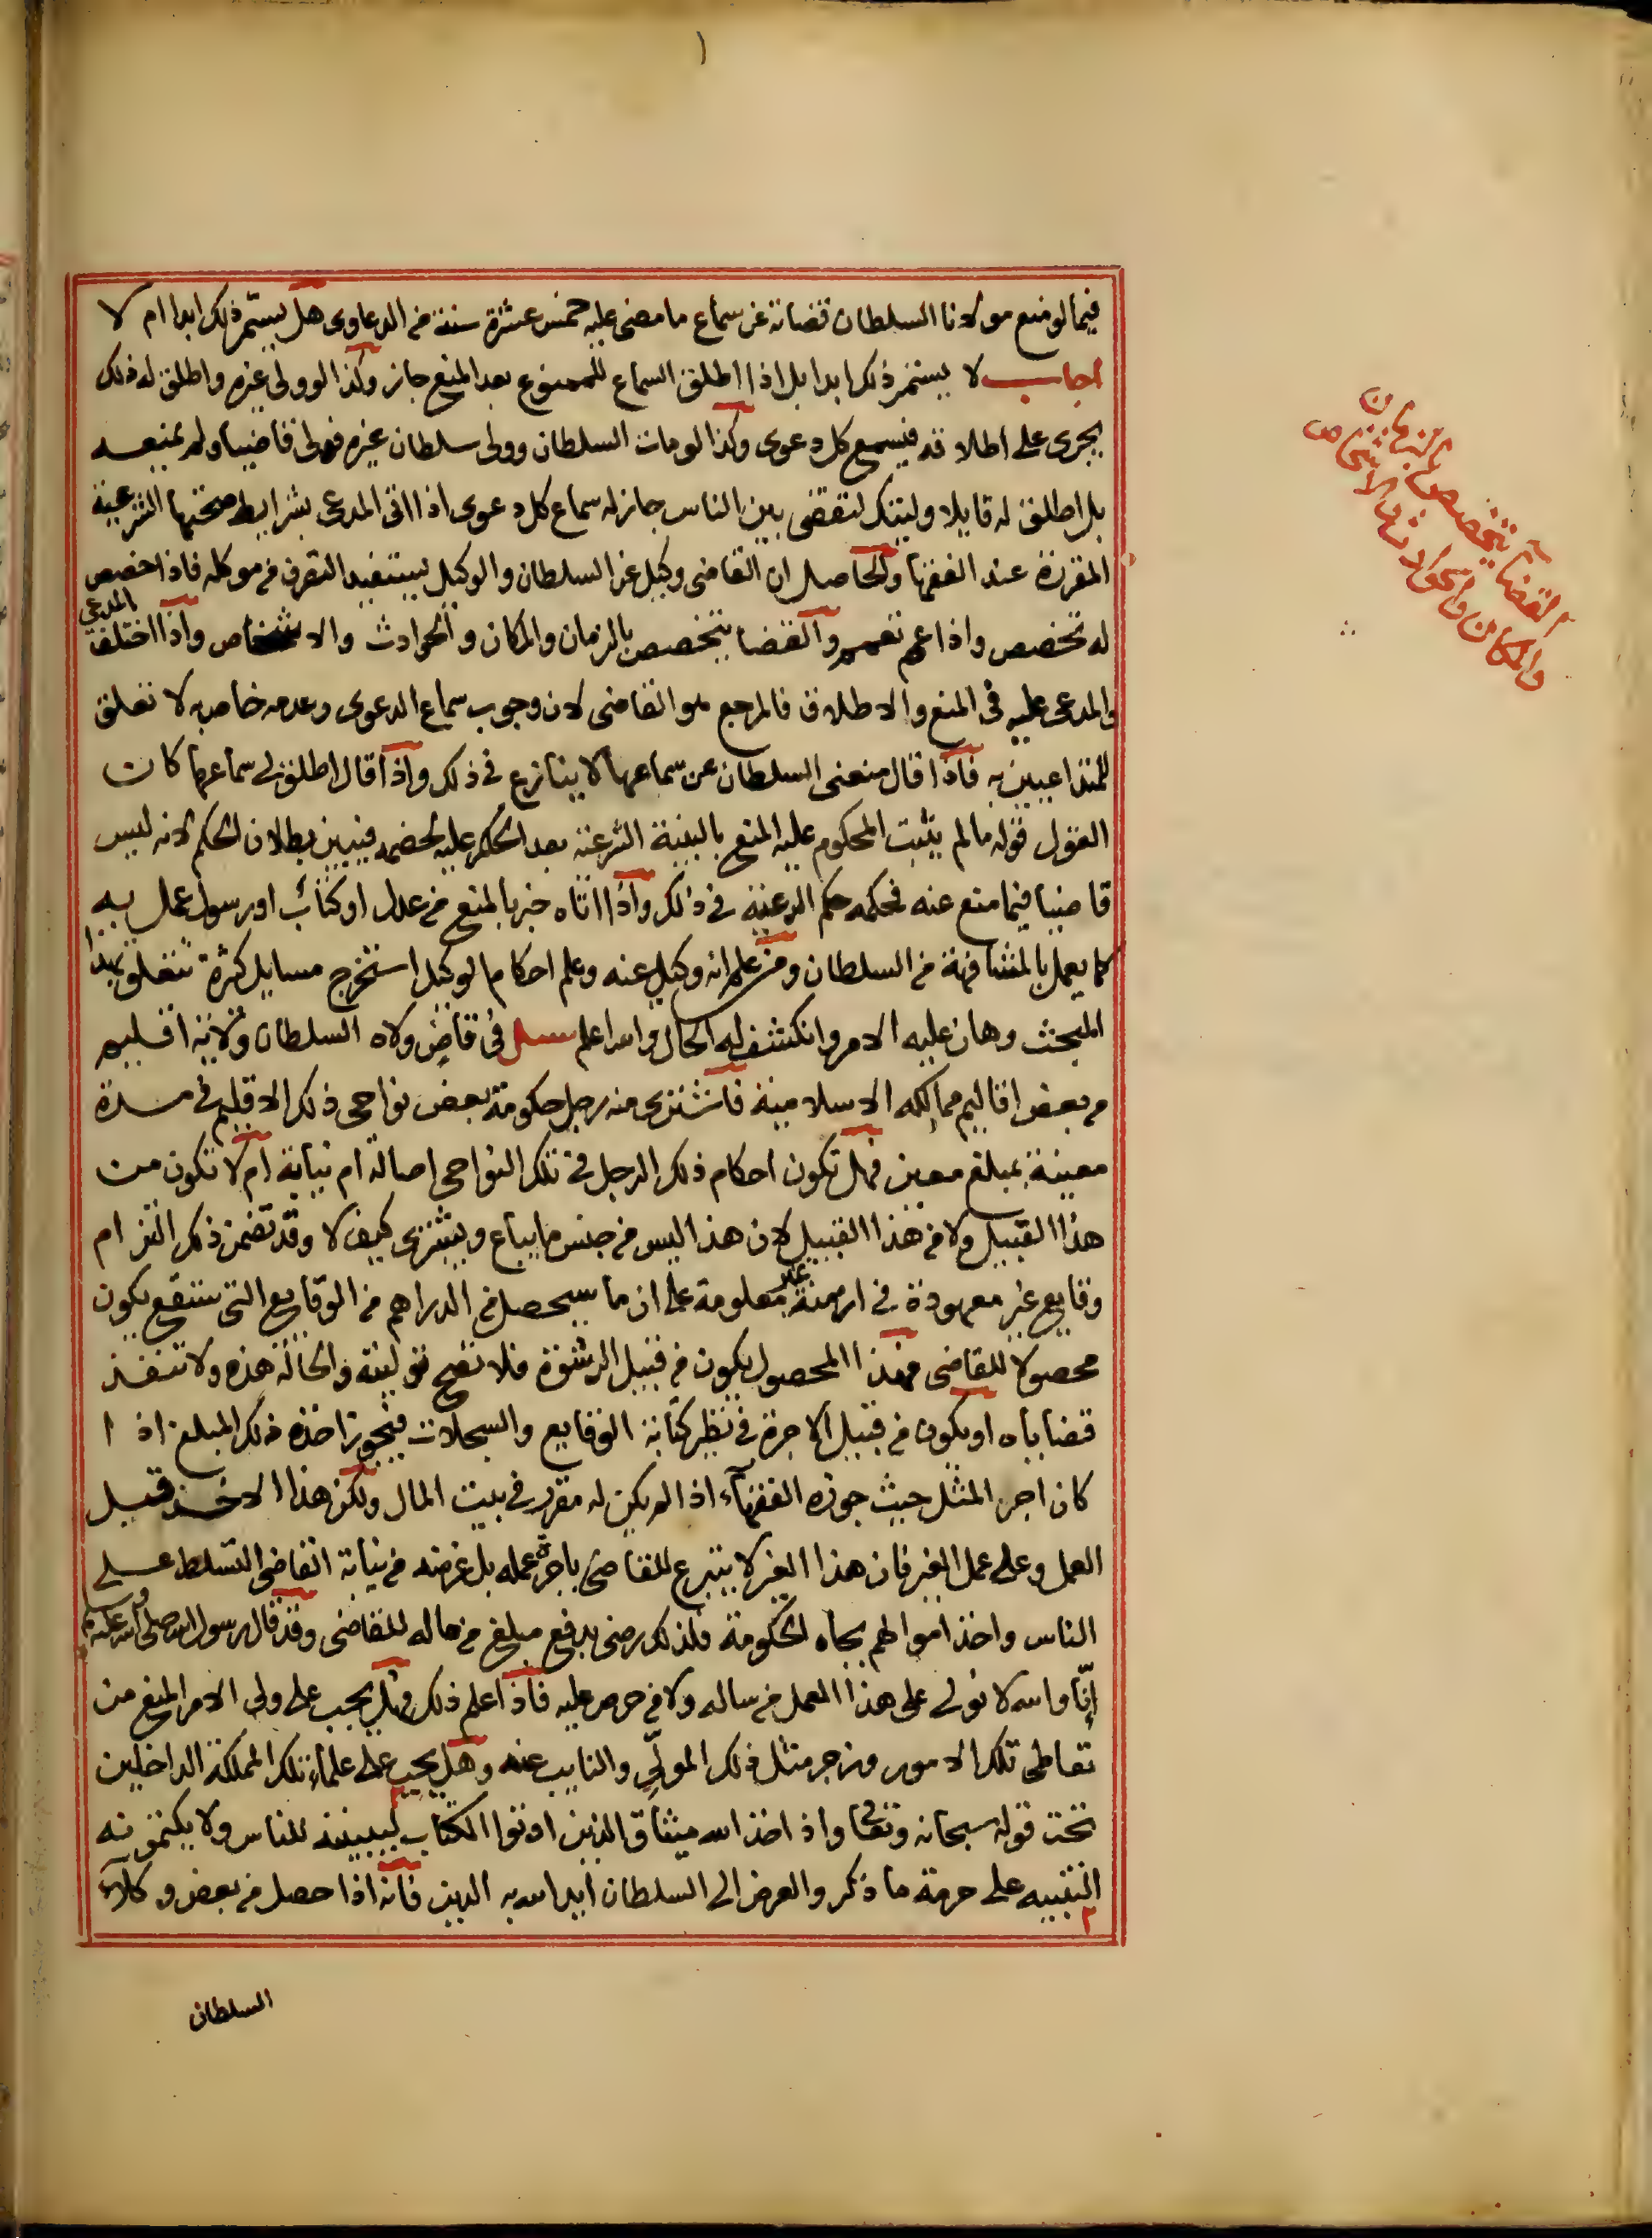 فيما لو منع مولانا السلطان قضاته عن سماع ما مضى عليه خمس عشرة سنة من الدعاوى هل يستمر ذلك ابدا ام لا
اجاب لا يستمر ذلك ابدا بل اذا اطلق السماع للممنوع بعد المنع جاز وكذا لو ولى غيره واطلق له ذلك
يجرى على اطلاقه فيسمع كل دعوى وكذا لو مات السلطان وولى سلطان غيره فولى قاضيا ولم يمنعه
بل اطلق له قايلا وليتك لتقضى بين الناس جاز له سماع كل دعوى اذا اتى المدعى بشرايط صحتها الشرعية
المقررة عند الفقها والحاصل ان القاضى وكيل عن السلطان والوكيل يستفيد التصرف من موكله فاذا خصص
له تخصص واذا عمم تعمم والقضا يتخصص بالزمان والمكان والحوادث والاشخاص واذا اختلف المدعى
والمدعى عليه فى المنع والاطلاق فالمرجع هو القاضى لان وجوب سماع الدعوى وعدمه خاص به لا تعلق
للمتداعيين به فاذا قال منعنى السلطان عن سماعها لا ينازع فى ذلك واذا قال اطلق لى سماعها كان
القول قوله ما لم يثبت المحكوم عليه المنع بالبينة الشرعية بعد الحكم عليه لخصمه فيتبين بطلان الحكم لانه ليس
قاضيا فيما منع عنه فحكمه حكم الرعية فى ذلك واذا اتاه خبر بالمنع من عدل او كتاب او رسول عمل به
كما يعمل بالمشافهة من السلطان ومن علم انه وكيل عنه وعلم احكام الوكيل استخرج مسايل كثيرة تتعلق بهذا
المبحث وهان عليه الامر وانكشف له الحال والله اعلم سئل فى قاض ولاه السلطان ولاية اقليم
من بعض اقاليم ممالكه الاسلامية فاشترى منه رجل حكومة بعض نواحى ذلك الاقليم فى مدة
معينة بمبلغ معين فهل تكون احكام ذلك الرجل فى تلك النواحى اصالة ام نيابة ام لا تكون من
هذا القبيل ولا من هذا القبيل لان هذا ليس من جنس ما يباع ويشترى كيف لا وقد تضمن ذلك التزام
وقايع غير معهودة فى ازمنة غير معلومة على ان ما سيحصل من الدراهم من الوقايع التى ستقع يكون
محصولا للقاضى فهذا المحصول يكون من قبيل الرشوة فلا تصح توليته والحالة هذه ولا تنفذ
قضاياه او يكون من قبيل الاجرة فى نظير كتابة الوقايع والسجلات فيجوز اخذه ذلك المبلغ اذا
كان اجر المثل حيث جوزه الفقهآء اذا لم يكن له مقرر فى بيت المال ولكن هذا الاخذ قبل
العمل وعلى عمل الغير فان هذا الغير لا يتبرع للقاضى باجرة عمله بل غرضه من نيابة القاضى التسلط على
الناس واخذ اموالهم بجاه الحكومة فلذلك رضى بدفع مبلغ من ماله للقاضى وقد قال رسول الله صلى الله عليه وسلم
إنّا والله لا نولى على هذا العمل من ساله ولا من حرص عليه فاذا علم ذلك فهل يجب على ولى الامر المنع من
تعاطى تلك الامور وزجر مثل ذلك المولّى والنايب عنه وهل يجب على علماء تلك المملكة الداخلين
تحت قوله سبحانه وتعالى واذ اخذ الله ميثاق الذين اوتوا الكتاب ليبيننه للناس ولا يكتمونه
التنبيه على حرمة ما ذكر والعرض الى السلطان ايد الله به الدين فانه اذا حصل من بعض وكلآء
السلطان
القضآ يتخصص بالزمان
والمكان والحوادث والاشخاص